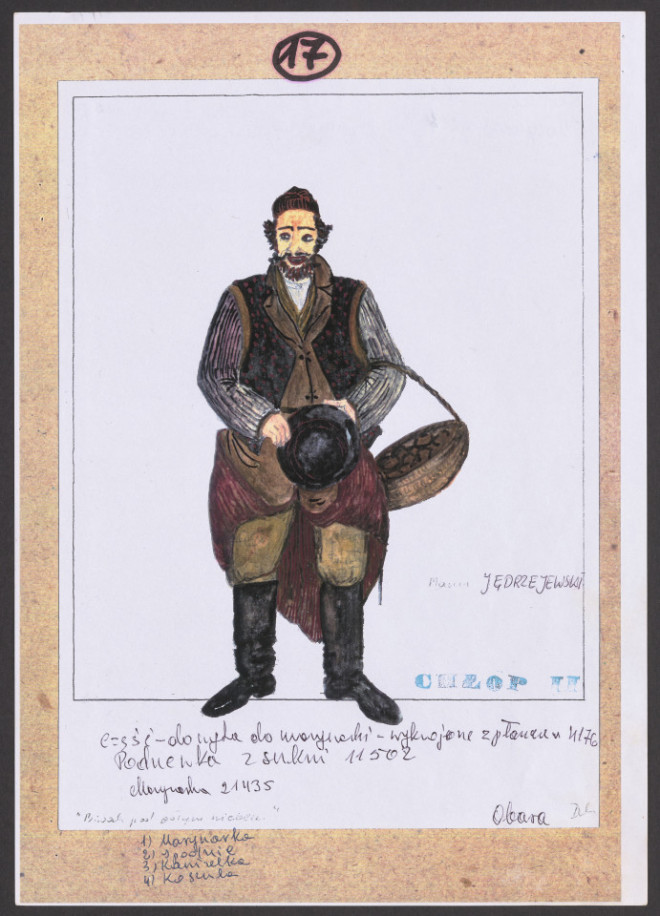 17
JĘDRZEJEWSKI
CHŁOP II
część - do szycia do marynarki - wykrojone z płaszcza 4176
Podnewka z sukni 11502
Marynarka 21435
"Piszak pod gołym niebem"
Obara
1) Marynarka
2) Spodnie
3) Kamizelka
4) Koszula